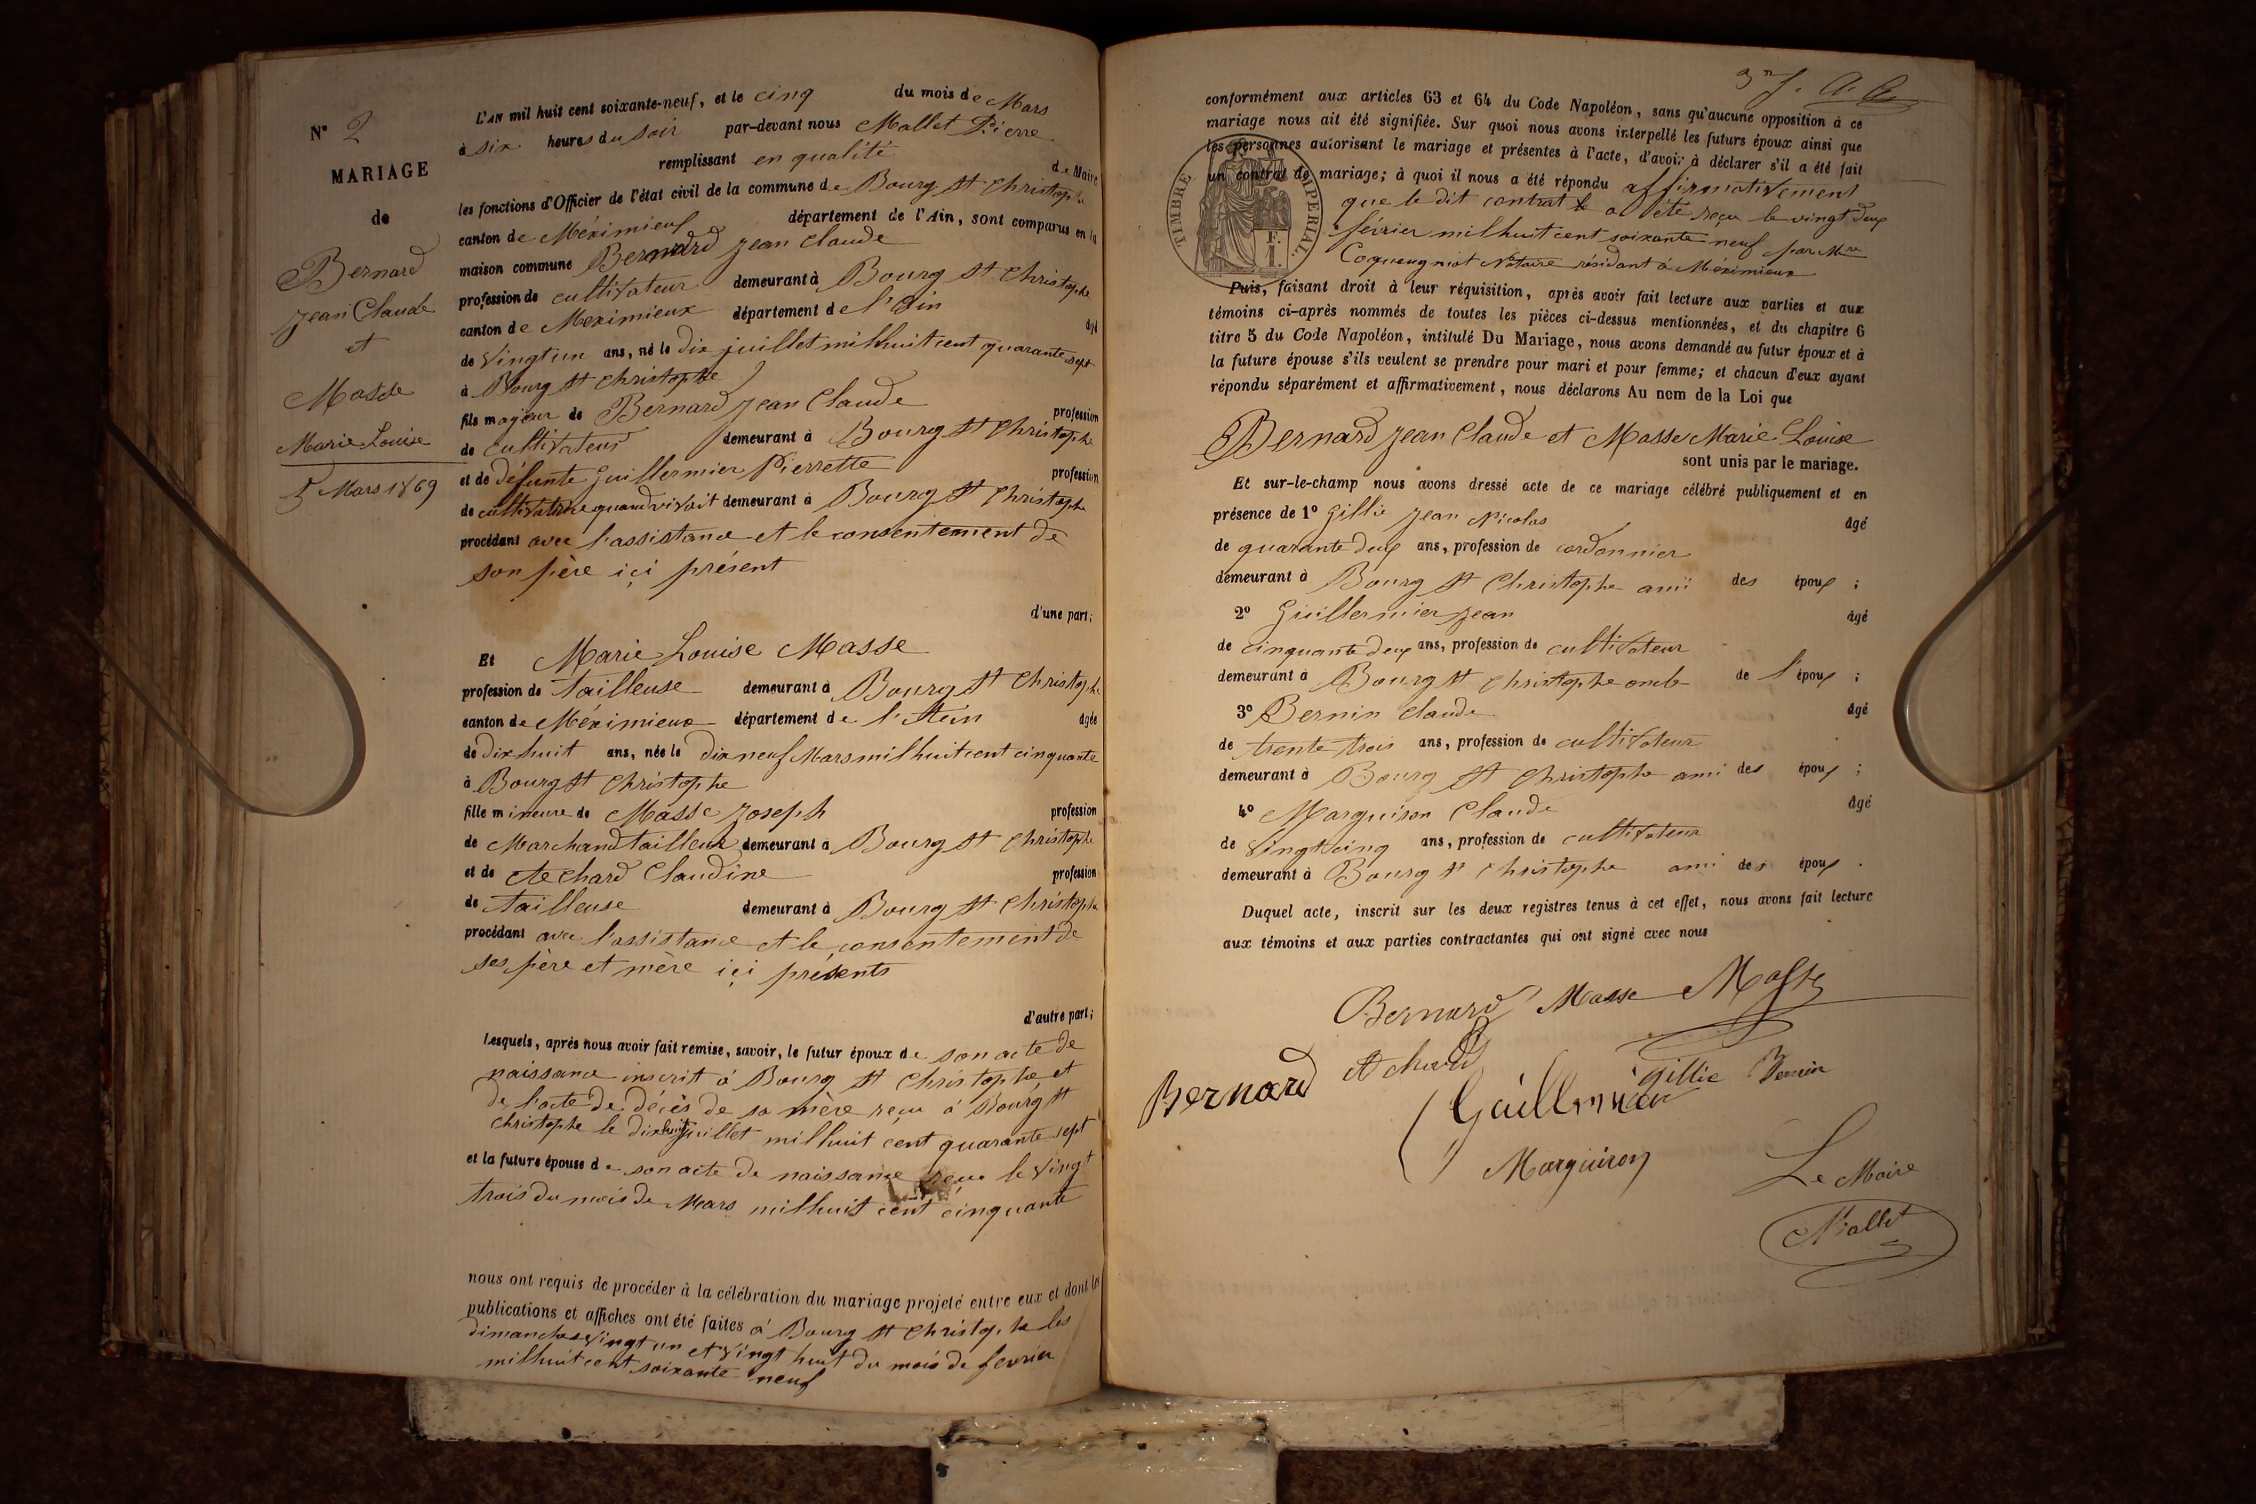 N° 2
MARIAGE
de
Bernard
Jean Claude
et
Masse
Marie Louise
5 Mars 1869
L'AN mil huit cent soixante-neuf, et le cinq du mois de Mars
à six heures du soir par-devant nous Mallet Pierre
remplissant en qualité de Maire
les fonctions d'Officier de l'état civil de la commune de Bourg St Christophe
canton de Méximieux département de l'Ain, sont comparus en la
maison commune Bernard Jean Claude
profession de cultivateur demeurant à Bourg St Christophe
canton de Meximieux département de l'Ain âgé
de vingt un ans, né le dix juillet mil huit cent quarante sept
à Bourg St Christophe
fils majeur de Bernard Jean Claude profession
de cultivateur demeurant à Bourg St Christophe
et de défunte Guillermier Pierrette profession
de cultivatrice quand vivait demeurant à Bourg St Christophe
procédant avec l'assistance et le consentement de
son père içi présent
d'une part;
Et Marie Louise Masse
profession de tailleuse demeurant à Bourg St Christophe
canton de Méximieux département de l'Ain âgée
de dix huit ans, née le dix neuf Mars mil huit cent cinquante
à Bourg St Christophe
fille mineure de Masse Joseph profession
de Marchand tailleur demeurant à Bourg St Christophe
et de Achard Claudine profession
de tailleuse demeurant à Bourg St Christophe
procédant avec l'assistance et le consentement de
ses père et mère içi présents
d'autre part;
Lesquels, après nous avoir fait remise, savoir, le futur époux de son acte de
naissance inscrit à Bourg St Christophe et
de l'acte de décès de sa mère reçu à Bourg St
Christophe le dix huit juillet mil huit cent quarante sept
et la future épouse de son acte de naissance reçu le vingt
trois du mois de Mars mil huit cent cinquante
nous ont requis de procéder à la célébration du mariage projeté entre eux et dont les
publications et affiches ont été faites à Bourg St Christophe les
dimanches vingt un et vingt huit du mois de fevrier
mil huit cent soixante neuf
conformément aux articles 63 et 64 du Code Napoléon, sans qu'aucune opposition à ce
mariage nous ait été signifiée. Sur quoi nous avons interpellé les futurs époux ainsi que
les personnes autorisant le mariage et présentes à l'acte, d'avoir à déclarer s'il a été fait
un contrat de mariage; à quoi il nous a été répondu affirmativement
que le dit contrat a été reçu le vingt deux
février mil huit cent soixante neuf par Mre
Coqueugniot Notaire résidant à Méximieux
TIMBRE IMPERIAL.
F.
1.
Puis, faisant droit à leur réquisition, après avoir fait lecture aux parties et aux
témoins ci-après nommés de toutes les pièces ci-dessus mentionnées, et du chapitre 6
titre 5 du Code Napoléon, intitulé Du Mariage, nous avons demandé au futur époux et à
la future épouse s'ils veulent se prendre pour mari et pour femme; et chacun d'eux ayant
répondu séparément et affirmativement, nous déclarons Au nom de la Loi que
Bernard Jean Claude et Masse Marie Louise
sont unis par le mariage.
Et sur-le-champ nous avons dressé acte de ce mariage célébré publiquement et en
présence de 1° Gillie Jean Nicolas âgé
de quarante deux ans, profession de cordonnier
demeurant à Bourg St Christophe ami des époux;
2° Guillermier Jean âgé
de cinquante deux ans, profession de cultivateur
demeurant à Bourg St Christophe oncle de l'époux;
3° Bernin Claude âgé
de trente trois ans, profession de cultivateur
demeurant à Bourg St Christophe ami des époux;
4° Marguiron Claude âgé
de vingt cinq ans, profession de cultivateur
demeurant à Bourg St Christophe ami des époux.
Duquel acte, inscrit sur les deux registres tenus à cet effet, nous avons fait lecture
aux témoins et aux parties contractantes qui ont signé avec nous
Bernard Masse Masse
Achard
Gillie Bernin
Bernard
Guillermier
Marguiron
Le Maire
Mallet